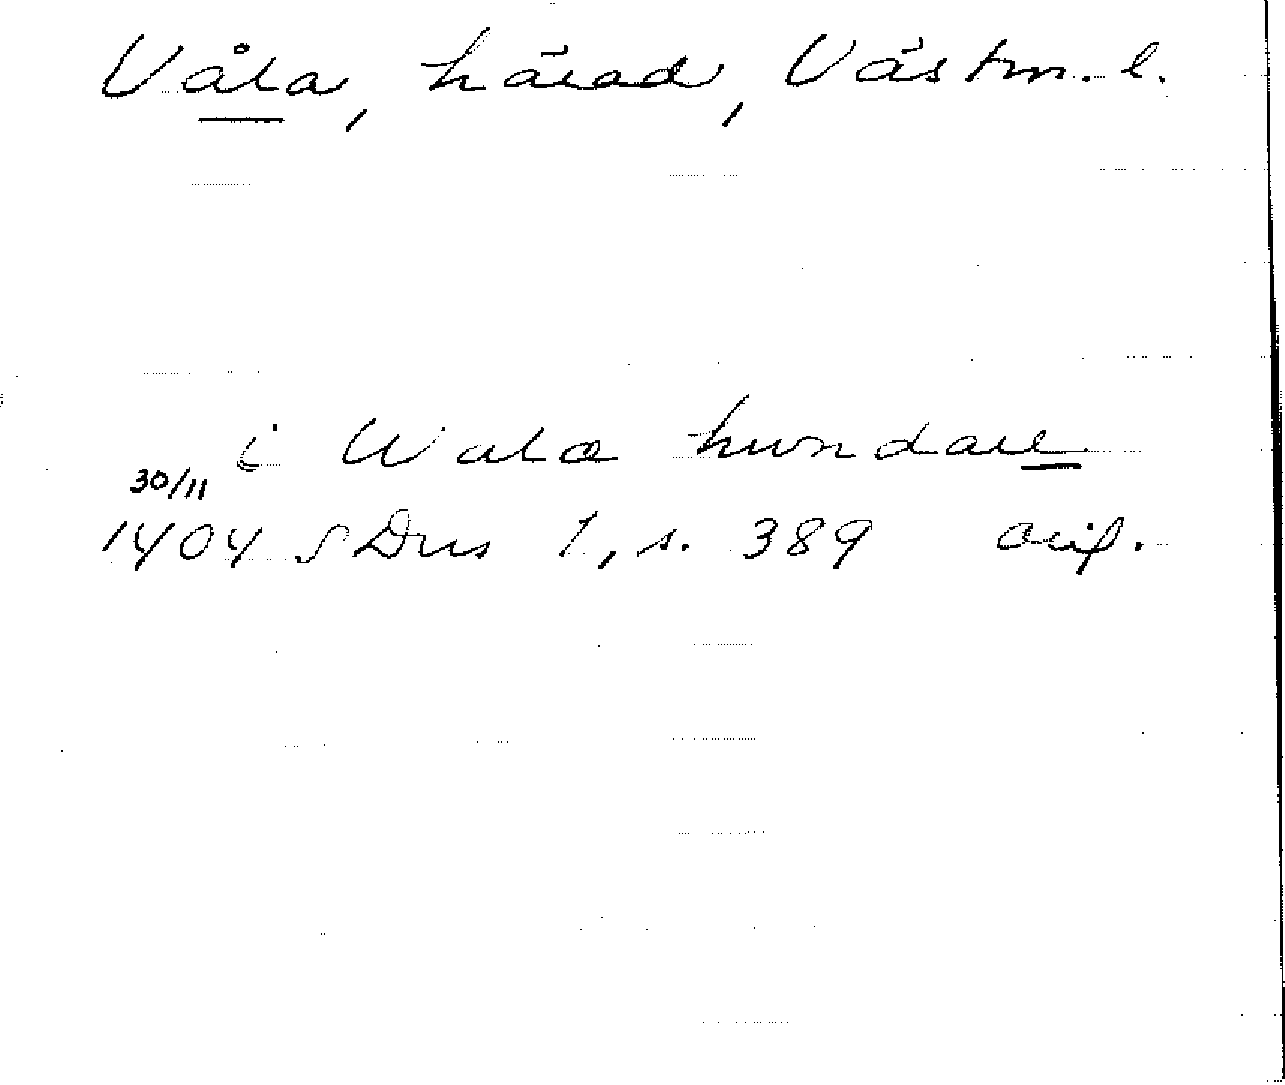 Våla, härad, Västm. l.
i Wala hundare
30/11
1404 SDns 1, s. 389 orig.